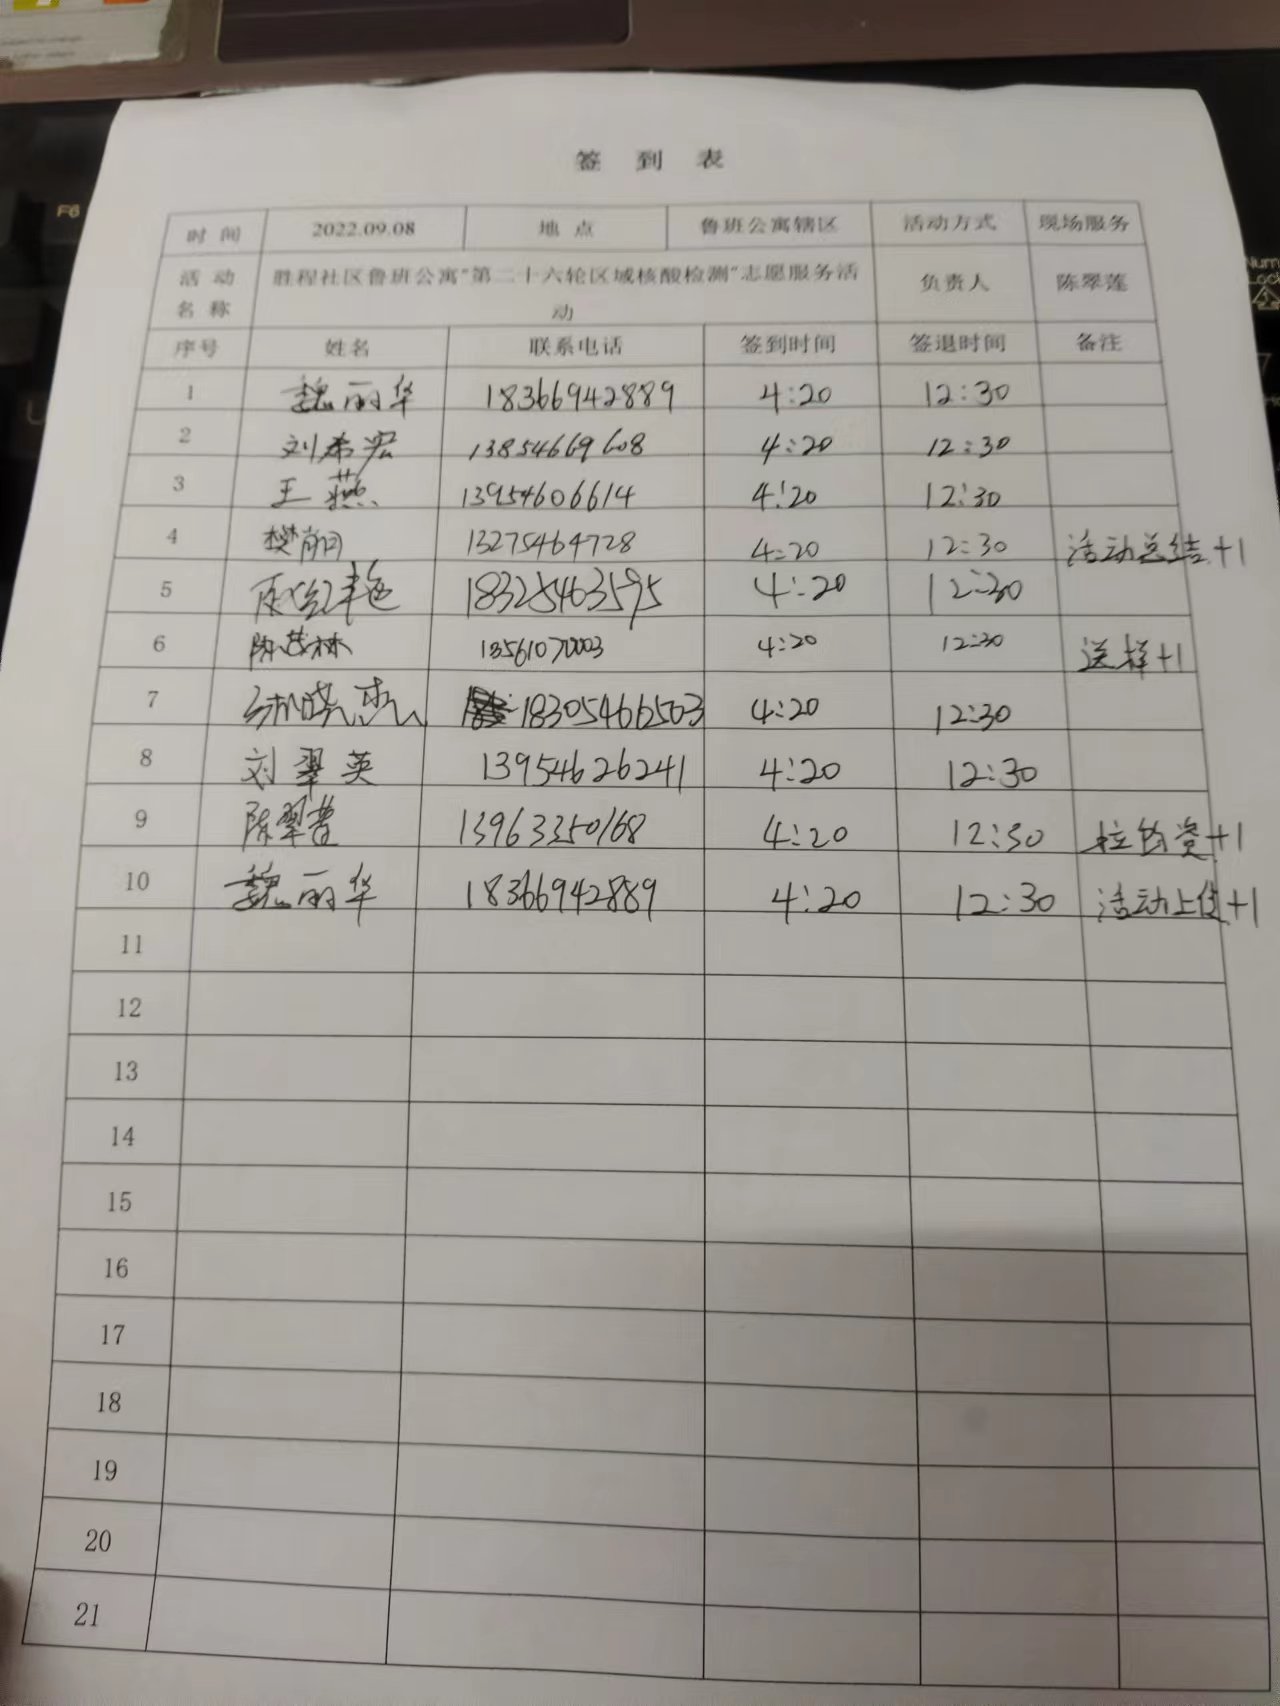 签 到 表
时 间 2022.09.08 地 点 鲁班公寓辖区 活动方式 现场服务
活 动 名 称 胜程社区鲁班公寓“第二十六轮区域核酸检测”志愿服务活动 负责人 陈翠莲
序号 姓名 联系电话 签到时间 签退时间 备注
1 魏丽华 18366942889 4:20 12:30
2 刘希宏 13854669608 4:20 12:30
3 王燕 13954606614 4:20 12:30
4 樊 13275464728 4:20 12:30 活动总结+1
5 18325463595 4:20 12:30
6 陈茂林 13561070003 4:20 12:30 送样+1
7 18305466503 4:20 12:30
8 刘翠英 13954626241 4:20 12:30
9 陈翠 13963350168 4:20 12:30 拉物资+1
10 魏丽华 18366942889 4:20 12:30 活动上传+1
11
12
13
14
15
16
17
18
19
20
21
F6
Num
Loc